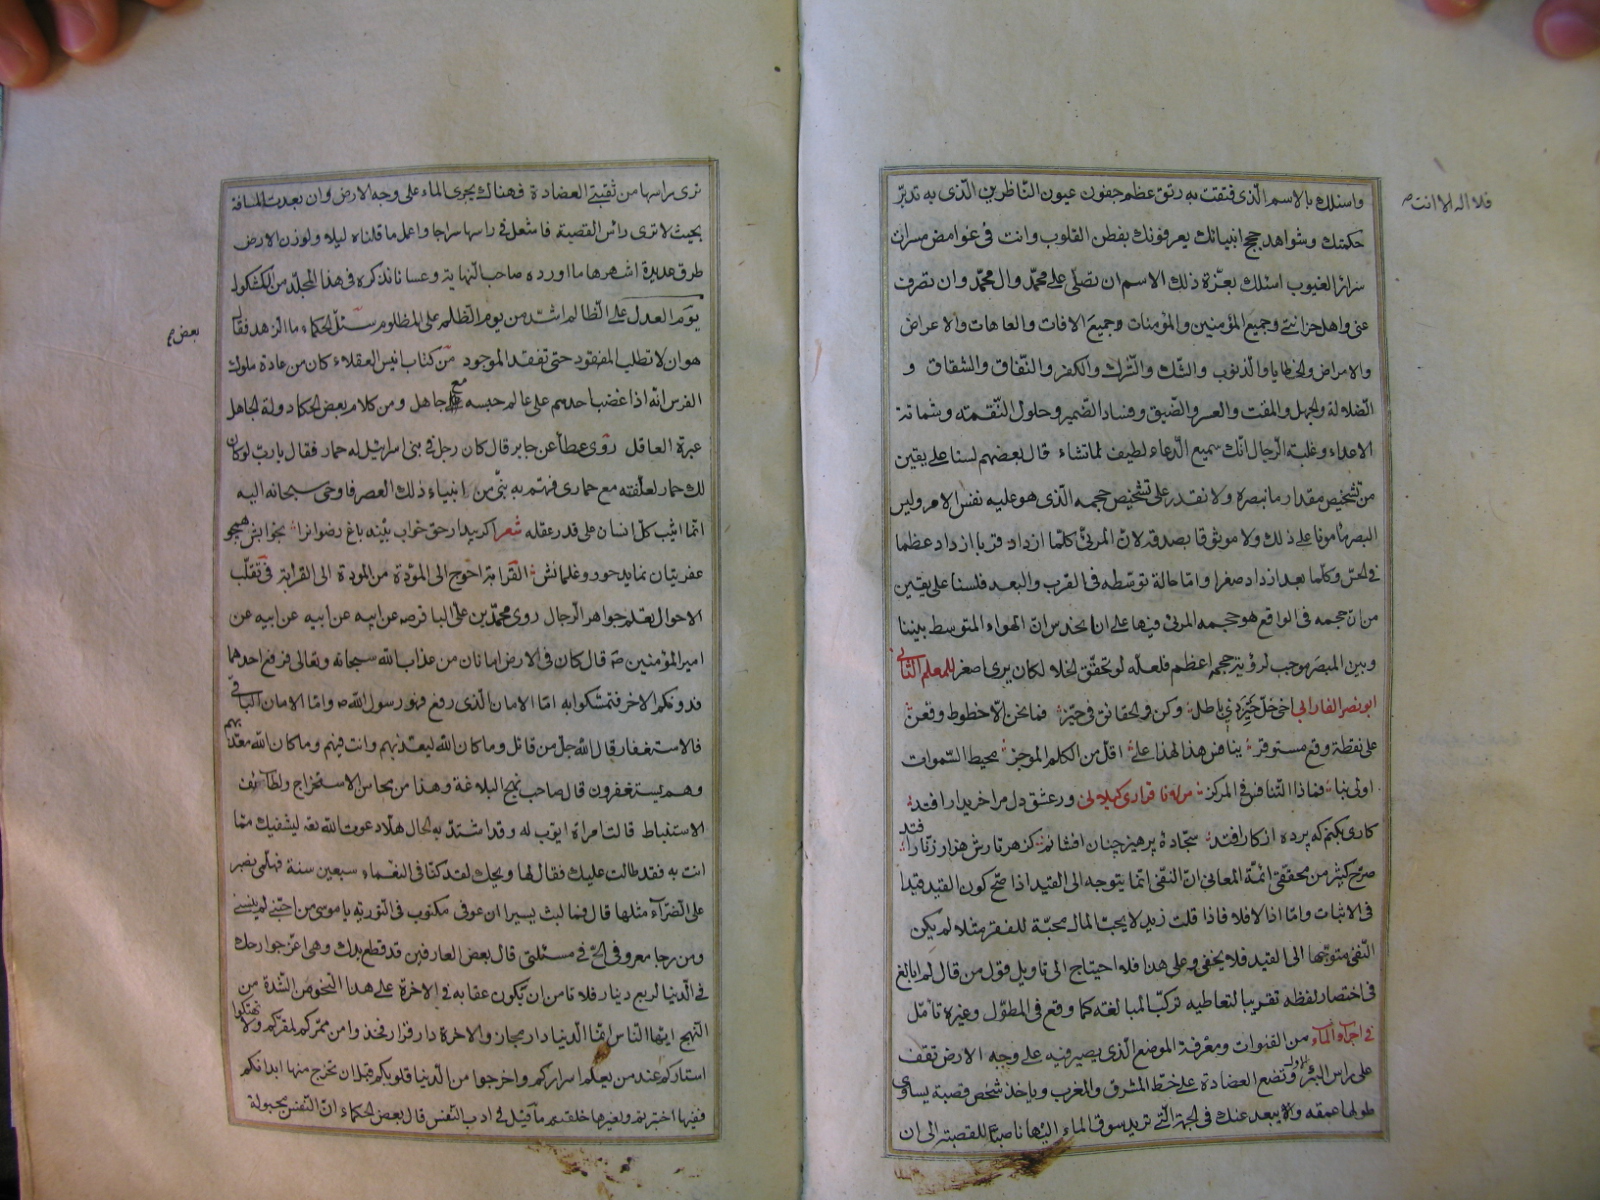 واسئلك بالاسم الّذى فتقت به رتق عظم جفون عيون النّاظرين الّذى به تدبّر
فلا اله الا انت
حكمتك وشواهد حجج انبيائك يعرفونك بفطن القلوب وانت فى غوامض مسرات
سرائر الغيوب اسئلك بعزّة ذلك الاسم ان تصلّى على محمّد وال محمّد وان تصرف
عنى واهل حزانتى وجميع المؤمنين والمؤمنات وجميع الافات والعاهات والاعراض
والامراض والخطايا والذنوب والشّك والشّرك والكفر والنّفاق والشقاق و
الضلالة والجهل والمقت والعسر والضّيق وفساد الضّمير وحلول النّقمة وشماتة
الاعداء وغلبة الرّجال انّك سميع الدّعاء لطيف لما تشاء قال بعضهم لسنا على يقين
من تشخيص مقدار ما نبصره ولا نقدر على تشخيص حجمه الّذى هو عليه نفس الامر وليس
البصر مأمونا على ذلك ولا موثوقا بصدقه لانّ المرئىّ كلّما ازداد قربا ازداد عظما
فى الحسّ وكلّما بعد ازداد صغرا وامّا حالة توسّطه فى القرب والبعد فلسنا على يقين
من انّ حجمه فى الواقع هو حجمه المرئى فيها على انا نحدس انّ الهواء المتوسط بيننا
وبين المبصر موجب لرؤية حجمه اعظم فلعلّه لو تحقّق الخلا لكان يرى اصغر للمعلم الثّانى
ابو نصر الفارابى اخى خلّ حيّز ذى باطل وكن فى الحقائق فى حيّز فما نحن الّا خطوط وقعن
على نقطة وقع مستوفز ينافس هذا لهذا على اقلّ من الكلم الموجز محيط السّموات
اولى بنا فماذا التّنافس فى المركز در عشق دل مرا خريدار افتد
كارى بكنم كه پرده از كار افتد سجّادۀ پرهيز چنان افشانم كز هر تارش هزار زنّار افتد
صرّح كثير من محقّقى ائمّة المعانى انّ النّفى انّما يتوجه الى القيد اذا صحّ كون القيد قيدا
فى الاثبات وامّا اذا لا فلا فاذا قلت زيد لا يحبّ المال محبّة للفقر مثلا لم يكن
النّفى متوجّها الى القيد فلا يخفى وعلى هذا فلا احتياج الى تأويل قول من قال لم ابالغ
فى اختصار لفظه تقريبا لتعاطيه بتركب المبالغة كما وقع فى المطوّل وغيره تامّل
فى اجراء الماء من القنوات ومعرفة الموضع الّذى يصير فيه على وجه الارض تقف
على راس البئر الاول وتضع العضادة على خطّ المشرق والمغرب وياخذ شخص قصبة يساوى
طولها عمقه ويبعد عنك فى الجهة الّتى تريد سوق الماء اليها ناصبا للقصبة الى ان
ترى راسها من ثقبتى العضادة فهناك يجرى الماء على وجه الارض وان بعدت المسافة
بحيث لا ترى رأس القصبة فاشعل فى راسها سراجا واعمل ما قلناه ليلا ولوزن الارض
طرق عديدة اشهرها ما اورده صاحب النّهاية وعسانا نذكره فى هذا المجلّد من الكشكول
يوم العدل على الظّالم اشدّ من يوم الظّلم على المظلوم سئل بعض الحكماء ما الزهد فقال
هو ان لا تطلب المفقود حتى تفقد الموجود من كتاب انيس العقلاء كان من عادة ملوك
الفرس انّه اذا غضب احدهم على عالم حبسه مع جاهل ومن كلام بعض الحكما دولة الجاهل
عبرة العاقل روى عطاء عن جابر قال كان رجل فى بنى اسرائيل له حمار فقال يا ربّ لو كان
لك حمار لعلّفته مع حمارى فهمّ به نبىّ من انبياء ذلك العصر فاوحى سبحانه اليه
انّما اثيب كلّ انسان على قدر عقله شعر
القرابة احوج الى المودّة من المودة الى القرابة فى تقلّب
الاحوال يعلم جواهر الرّجال روى محمّد بن علىّ الباقر ص عن ابيه عن ابيه عن ابيه عن
امير المؤمنين ص قال كان فى الارض امانان من عذاب الله سبحانه وتعالى فرفع احدهما
فدونكم الاخر فتمسّكوا به امّا الامان الّذى رفع فهو رسول الله ص وامّا الامان الباقى
فالاستغفار قال الله جلّ من قائل وما كان الله ليعذّبهم وانت فيهم وما كان الله معذّبهم
وهم يستغفرون قال صاحب نهج البلاغة وهذا من محاسن الاستخراج ولطائف
الاستنباط قالت امراة ايّوب له وقد اشتدّ به الحال هلّا دعوت الله تعه ليشفيك ممّا
انت به فقد طالت علتك فقال لها ويحك لقد كنّا فى النّعماء سبعين سنة فهلمّى نصبر
على الضّرّاء مثلها قال فما لبث يسيرا ان عوفى مكتوب فى التّورية يا موسى من احبّنى لم ينسنى
ومن رجا معروفى الحّ فى مسئلتى قال بعض العارفين قد قطع يدك وهى اعزّ جوارحك
فى الدّنيا لربع دينار فلا تامن ان يكون عقابه فى الاخرة على هذا النّحو من الشّدّة من
النّهج ايّها النّاس انّما الدّنيا دار مجاز والاخرة دار قرار فخذوا من ممرّكم لمقرّكم ولا تهتكوا
استاركم عند من يعلم اسراركم واخرجوا من الدّنيا قلوبكم قبل ان تخرج منها ابدانكم
ففيها اختبرتم ولغيرها خلقتم ممّا قيل فى ادب النّفس قال بعض الحكماء انّ النّفس مجبولة